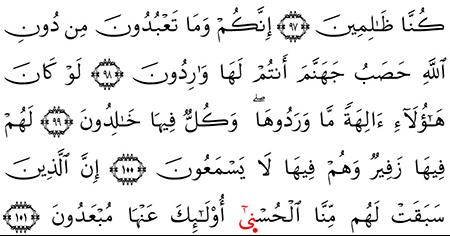 كُنَّا ظَٰلِمِينَ ۝٩٧ إِنَّكُمْ وَمَا تَعْبُدُونَ مِن دُونِ
اِ۬للَّهِ حَصَبُ جَهَنَّمَ أَنتُمْ لَهَا وَٰرِدُونَ ۝٩٨ لَوْ كَانَ
هَٰٓؤُلَآءِ ءَالِهَةً مَّا وَرَدُوهَا ۖ وَكُلٌّ فِيهَا خَٰلِدُونَ ۝٩٩ لَهُمْ
فِيهَا زَفِيرٌ وَهُمْ فِيهَا لَا يَسْمَعُونَ ۝١٠٠ إِنَّ اَ۬لَّذِينَ
سَبَقَتْ لَهُم مِّنَّا اَ۬لْحُسْن۪ىٓ أُوْلَٰٓئِكَ عَنْهَا مُبْعَدُونَ ۝١٠١